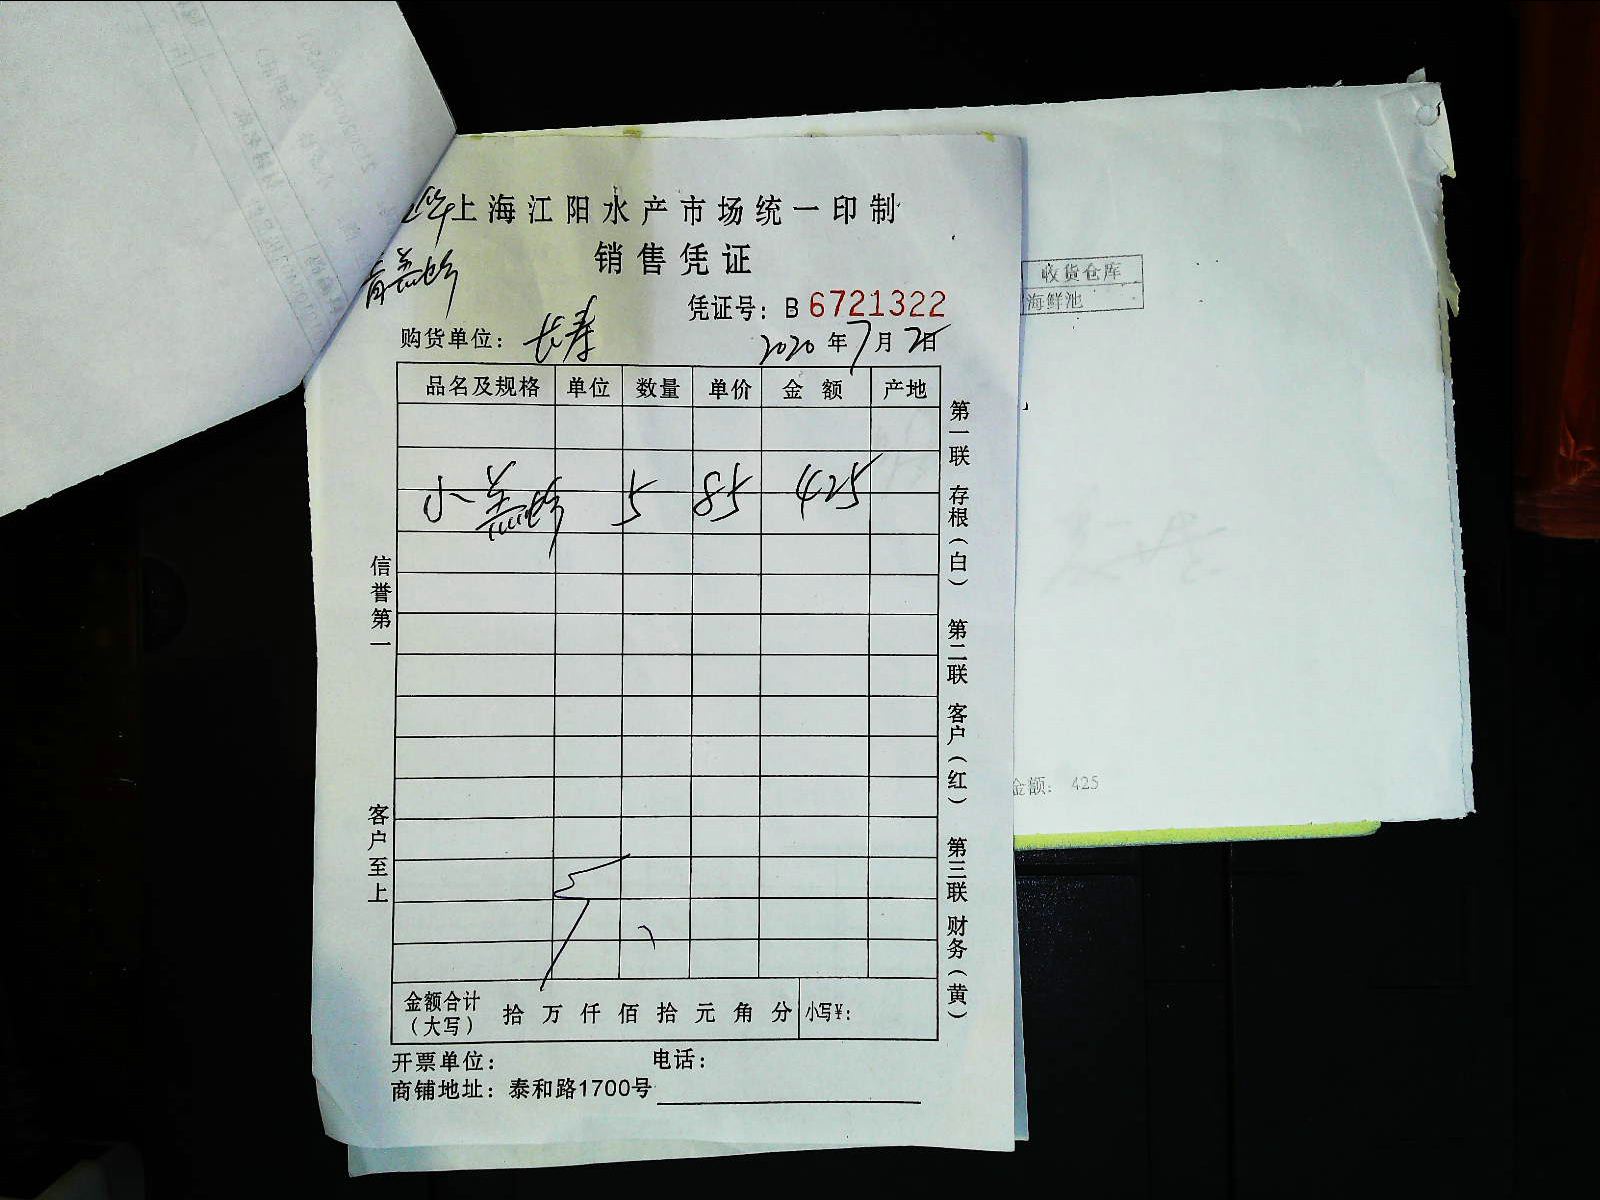 上海江阳水产市场统一印制
销售凭证
凭证号：B 6721322
购货单位：长寿
2020年7月25日
品名及规格 单位 数量 单价 金额 产地
小羔蛤 5 85 425
信誉第一
客户至上
第一联 存根（白） 第二联 客户（红） 第三联 财务（黄）
金额合计（大写） 拾 万 仟 佰 拾 元 角 分 小写¥：
开票单位： 电话：
商铺地址：泰和路1700号
收货仓库
海鲜池
金额：425